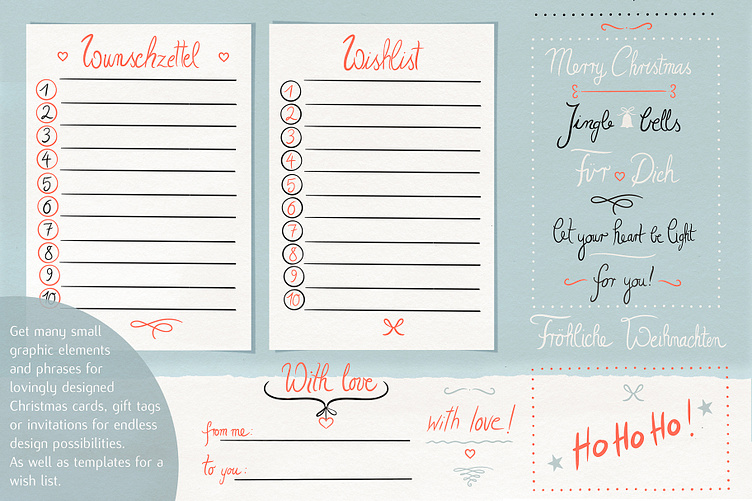 Wunschzettel
1
2
3
4
5
6
7
8
9
10
Wishlist
1
2
3
4
5
6
7
8
9
10
Merry Christmas
Jingle bells
Für Dich
let your heart be light
for you!
Fröhliche Weihnachten
Get many small
graphic elements
and phrases for
lovingly designed
Christmas cards, gift tags
or invitations for endless
design possibilities.
As well as templates for a
wish list.
With love
from me:
to you:
with love!
Ho Ho Ho!